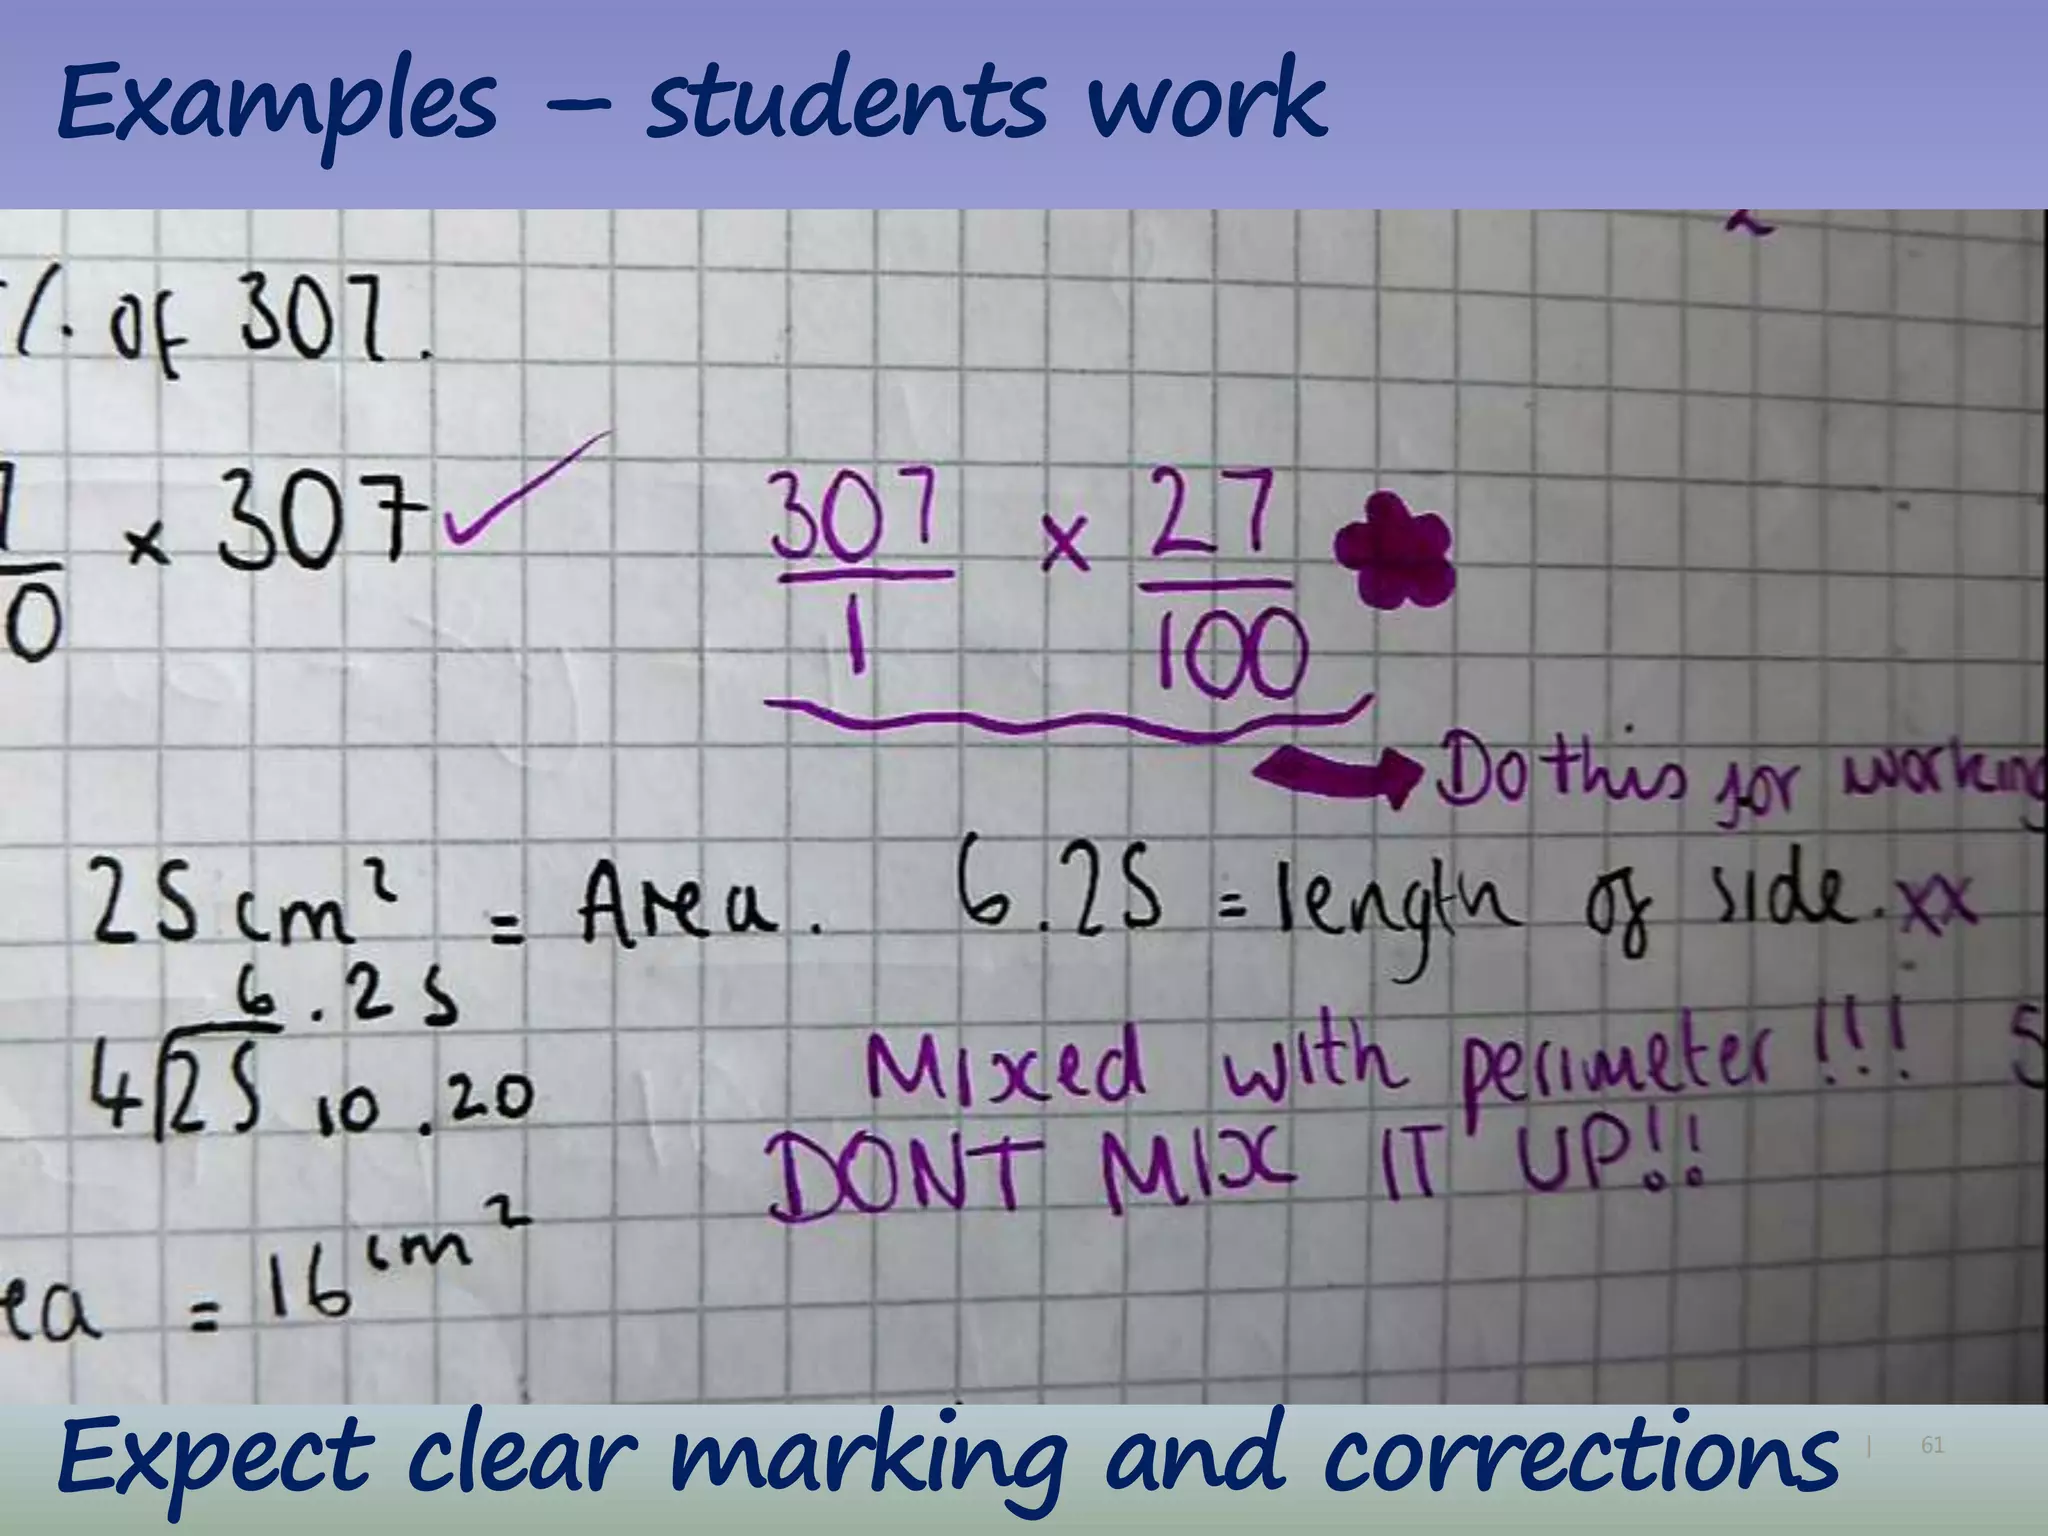 Examples – students work
% of 307.
× 307 ✓
307/1 × 27/100
Do this for working
25 cm² = Area. 6.25 = length of side. xx
6.25
4 25 10.20
Mixed with perimeter!!! 5
DONT MIX IT UP!!
= 16 cm²
Expect clear marking and corrections
| 61